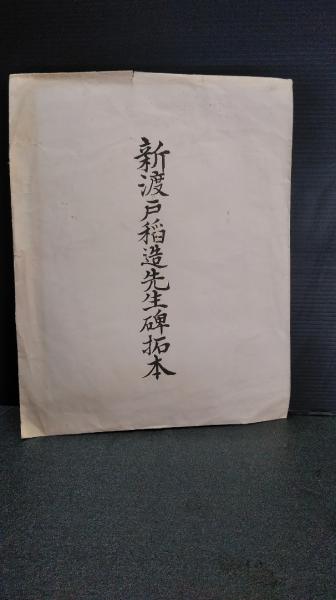 新渡戸稻造先生碑拓本